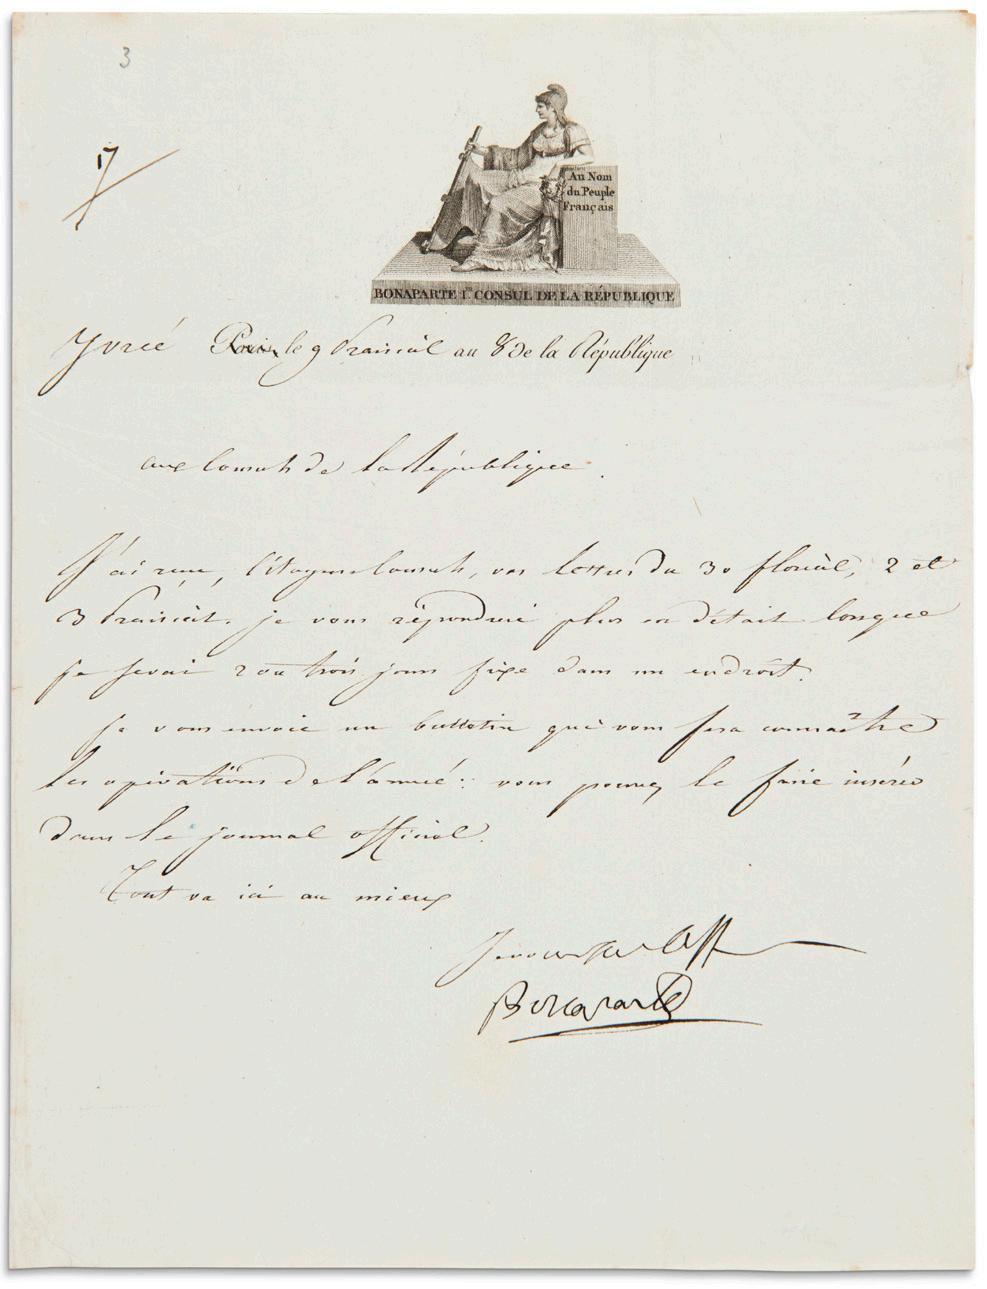 3
17
Au Nom
du Peuple
Français
BONAPARTE 1.er CONSUL DE LA RÉPUBLIQUE
Yvrée Paris, le 9 Prairial an 8 de la République
aux Consuls de la République.
J'ai reçu, Citoyens Consuls, vos lettres du 30 floréal, 2 et
3 Prairial. je vous répondrai plus en détail lorsque
je serai 2 ou trois jours fixe dans un endroit.
je vous envoie un bulletin qui vous fera connaître
les opérations de l'armée : vous pouvez le faire insérer
dans le journal officiel.
Tout va ici au mieux
Je vous salue aff
Bonaparte